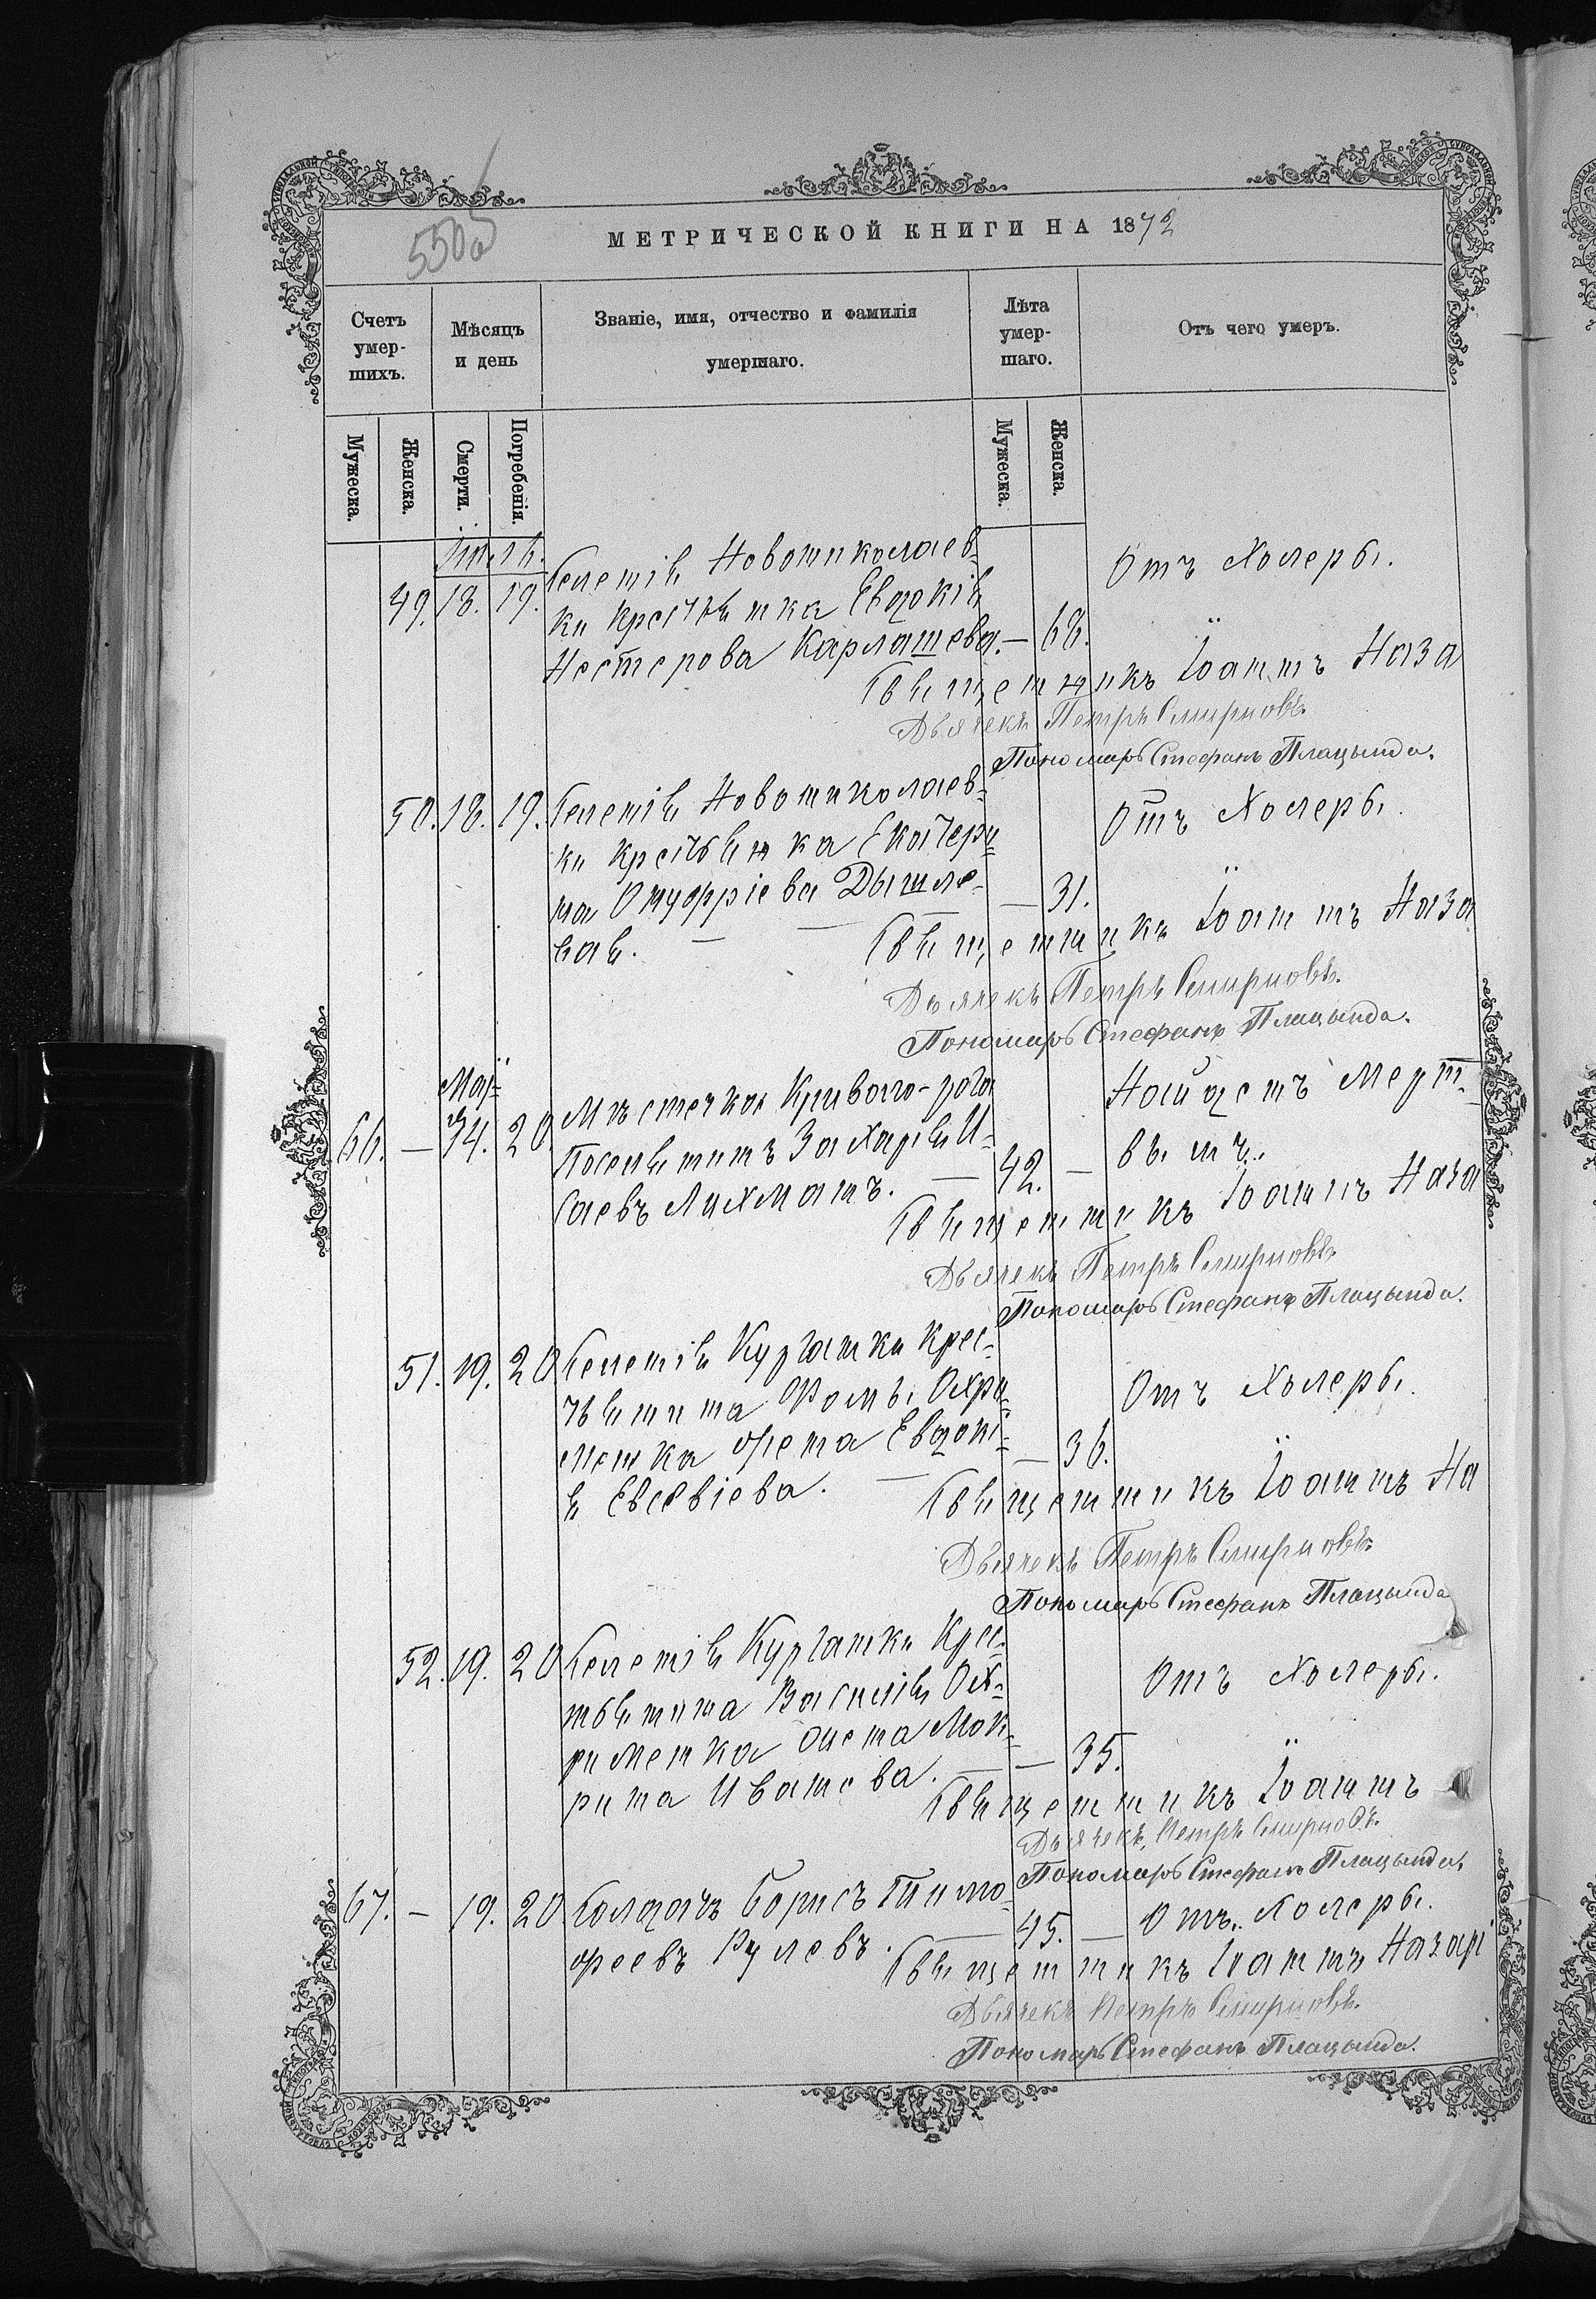 550а
МЕТРИЧЕСКОЙ КНИГИ НА 1872
Счетъ умер-шихъ.
Мѣсяцъ и день
Званіе, имя, отчество и фамилія умершаго.
Лѣта умер-шаго.
Отъ чего умеръ.
Мужеска.
Женска.
Смерти.
Погребенія.
Мужеска.
Женска.
49. 18. 19. Селенія Новониколаев-
ки крестьянка Евдокія
Нестерова Карлашева. — 68.
Отъ Холеры.
Священникъ Іоаннъ Наза
Дьячекъ Петръ Смирновъ.
Пономарь Стефанъ Плацында.
50. 18. 19. Селенія Новониколаев-
ки крестьянка Екатери-
на Онуфріева Дышле-
вая. — — — 31.
Отъ Холеры.
Священникъ Іоаннъ Наза
Дьячекъ Петръ Смирновъ.
Пономарь Стефанъ Плацында.
Маі
66. — 20 Мѣстечка Кривого-рога
Поселянинъ Захарія И-
саевъ Лихманъ. — 42. —
Найденъ мерт-
вымъ.
Священникъ Іоаннъ Наза
Дьячекъ Петръ Смирновъ
Пономарь Стефанъ Плацында.
51. 19. 20 Селенія Кургатки крес-
тьянина Фомы Охри-
менка жена Евдокі-
я Евсевіева. — — 36.
Отъ Холеры.
Священникъ Іоаннъ На
Дьячекъ Петръ Смирновъ
Пономарь Стефанъ Плацында
52. 19. 20 Селенія Кургатки Крес-
тьянина Василія Ох-
рименка жена Мок-
рина Иванова. — — 35.
Отъ Холеры.
Священникъ Іоаннъ
Дьячекъ Петръ Смирновъ.
Пономарь Стефанъ Плацында.
67. — 19. 20 Солдатъ Борисъ Тимо-
феевъ Рулевъ. — 45. —
Отъ Холеры.
Священникъ Іоаннъ Назарі
Дьячекъ Петръ Смирновъ.
Пономарь Стефанъ Плацында.